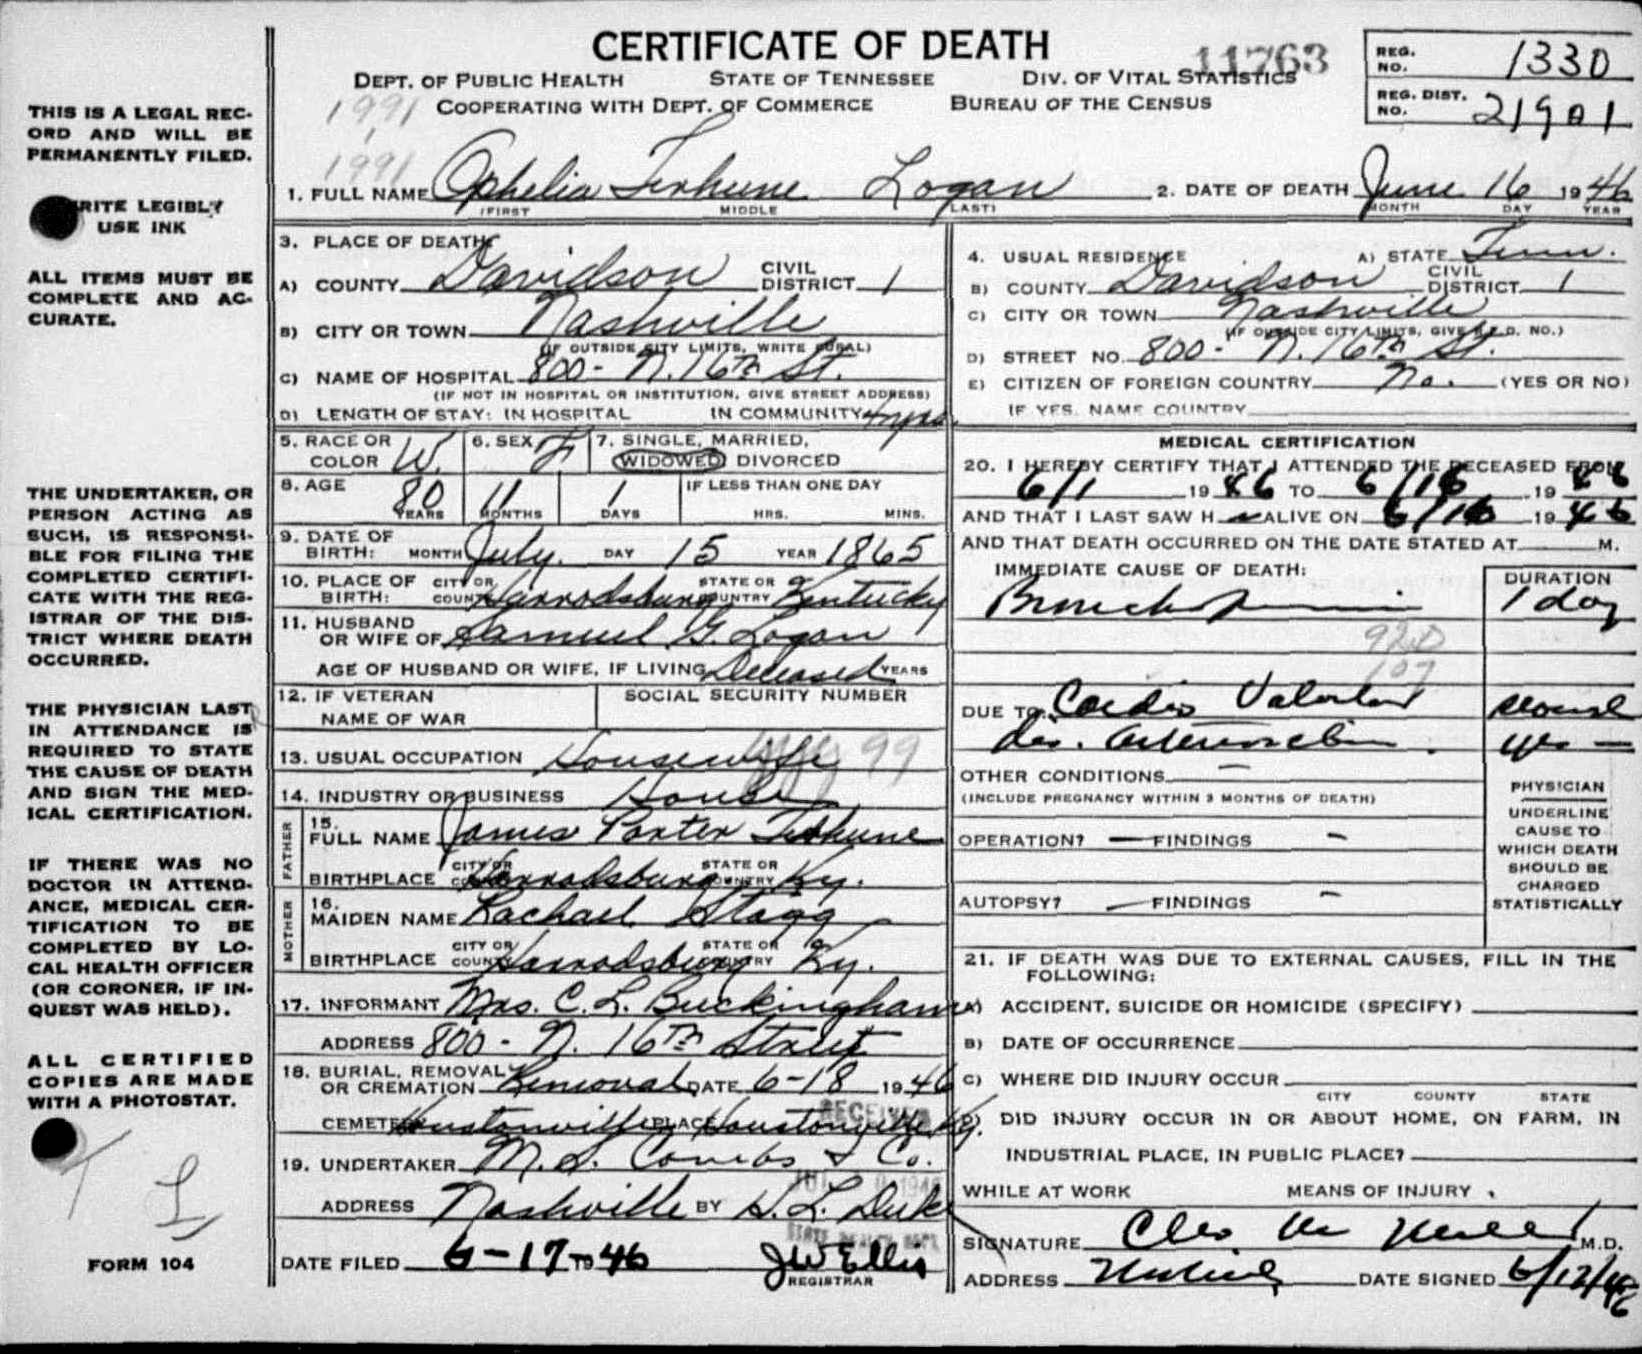 CERTIFICATE OF DEATH
11763
DEPT. OF PUBLIC HEALTH STATE OF TENNESSEE DIV. OF VITAL STATISTICS
1991 COOPERATING WITH DEPT. OF COMMERCE BUREAU OF THE CENSUS
REG. NO. 1330
REG. DIST. NO. 21901
THIS IS A LEGAL REC-
ORD AND WILL BE
PERMANENTLY FILED.
RITE LEGIBLY
USE INK
ALL ITEMS MUST BE
COMPLETE AND AC-
CURATE.
THE UNDERTAKER, OR
PERSON ACTING AS
SUCH, IS RESPONSI-
BLE FOR FILING THE
COMPLETED CERTIFI-
CATE WITH THE REG-
ISTRAR OF THE DIS-
TRICT WHERE DEATH
OCCURRED.
THE PHYSICIAN LAST
IN ATTENDANCE IS
REQUIRED TO STATE
THE CAUSE OF DEATH
AND SIGN THE MED-
ICAL CERTIFICATION.
IF THERE WAS NO
DOCTOR IN ATTEND-
ANCE, MEDICAL CER-
TIFICATION TO BE
COMPLETED BY LO-
CAL HEALTH OFFICER
(OR CORONER, IF IN-
QUEST WAS HELD).
ALL CERTIFIED
COPIES ARE MADE
WITH A PHOTOSTAT.
FORM 104
1991
1. FULL NAME Ophelia Terhune Logan 2. DATE OF DEATH June 16 1946
(FIRST MIDDLE LAST) MONTH DAY YEAR
3. PLACE OF DEATH:
A) COUNTY Davidson CIVIL DISTRICT 1
B) CITY OR TOWN Nashville
(IF OUTSIDE CITY LIMITS, WRITE RURAL)
C) NAME OF HOSPITAL 800 - N. 16th St.
(IF NOT IN HOSPITAL OR INSTITUTION, GIVE STREET ADDRESS)
D) LENGTH OF STAY: IN HOSPITAL IN COMMUNITY
5. RACE OR COLOR W. 6. SEX F 7. SINGLE, MARRIED, WIDOWED, DIVORCED
8. AGE 80 YEARS 11 MONTHS 1 DAYS IF LESS THAN ONE DAY HRS. MINS.
9. DATE OF BIRTH: MONTH July. DAY 15 YEAR 1865
10. PLACE OF BIRTH: CITY OR COUNTY Harrodsburg STATE OR COUNTRY Kentucky
11. HUSBAND OR WIFE OF Samuel G. Logan
AGE OF HUSBAND OR WIFE, IF LIVING Deceased YEARS
12. IF VETERAN NAME OF WAR SOCIAL SECURITY NUMBER
13. USUAL OCCUPATION Housewife 99
14. INDUSTRY OR BUSINESS House
FATHER
15. FULL NAME James Porter Terhune
BIRTHPLACE CITY OR COUNTY Harrodsburg STATE OR COUNTRY Ky.
MOTHER
16. MAIDEN NAME Rachael Stagg
BIRTHPLACE CITY OR COUNTY Harrodsburg STATE OR COUNTRY Ky.
17. INFORMANT Mrs. C. L. Buckingham
ADDRESS 800 - N. 16th Street
18. BURIAL, REMOVAL OR CREMATION Removal DATE 6-18 1946
CEMETERY Hustonville PLACE Houstonville Ky.
RECEIVED
19. UNDERTAKER M. S. Combs & Co.
ADDRESS Nashville BY H. L. Duke
STATE HEALTH DEPT.
DATE FILED 6-17 1946 J W Ellis
REGISTRAR
4. USUAL RESIDENCE A) STATE Tenn.
B) COUNTY Davidson CIVIL DISTRICT 1
C) CITY OR TOWN Nashville
(IF OUTSIDE CITY LIMITS, GIVE R.F.D. NO.)
D) STREET NO. 800 - N. 16th St.
E) CITIZEN OF FOREIGN COUNTRY No. (YES OR NO)
IF YES, NAME COUNTRY
MEDICAL CERTIFICATION
20. I HEREBY CERTIFY THAT I ATTENDED THE DECEASED FROM
6/1 1946 TO 6/16 1946
AND THAT I LAST SAW H ALIVE ON 6/16 1946
AND THAT DEATH OCCURRED ON THE DATE STATED AT M.
IMMEDIATE CAUSE OF DEATH: DURATION
1 day
920
107
DUE TO Cardio Valvular
dis.
OTHER CONDITIONS —
(INCLUDE PREGNANCY WITHIN 3 MONTHS OF DEATH)
OPERATION? — FINDINGS —
AUTOPSY? — FINDINGS —
PHYSICIAN
UNDERLINE
CAUSE TO
WHICH DEATH
SHOULD BE
CHARGED
STATISTICALLY
21. IF DEATH WAS DUE TO EXTERNAL CAUSES, FILL IN THE
FOLLOWING:
A) ACCIDENT, SUICIDE OR HOMICIDE (SPECIFY)
B) DATE OF OCCURRENCE
C) WHERE DID INJURY OCCUR
CITY COUNTY STATE
D) DID INJURY OCCUR IN OR ABOUT HOME, ON FARM, IN
INDUSTRIAL PLACE, IN PUBLIC PLACE?
WHILE AT WORK MEANS OF INJURY
SIGNATURE Cleo M. Miller M.D.
ADDRESS DATE SIGNED 6/17/46